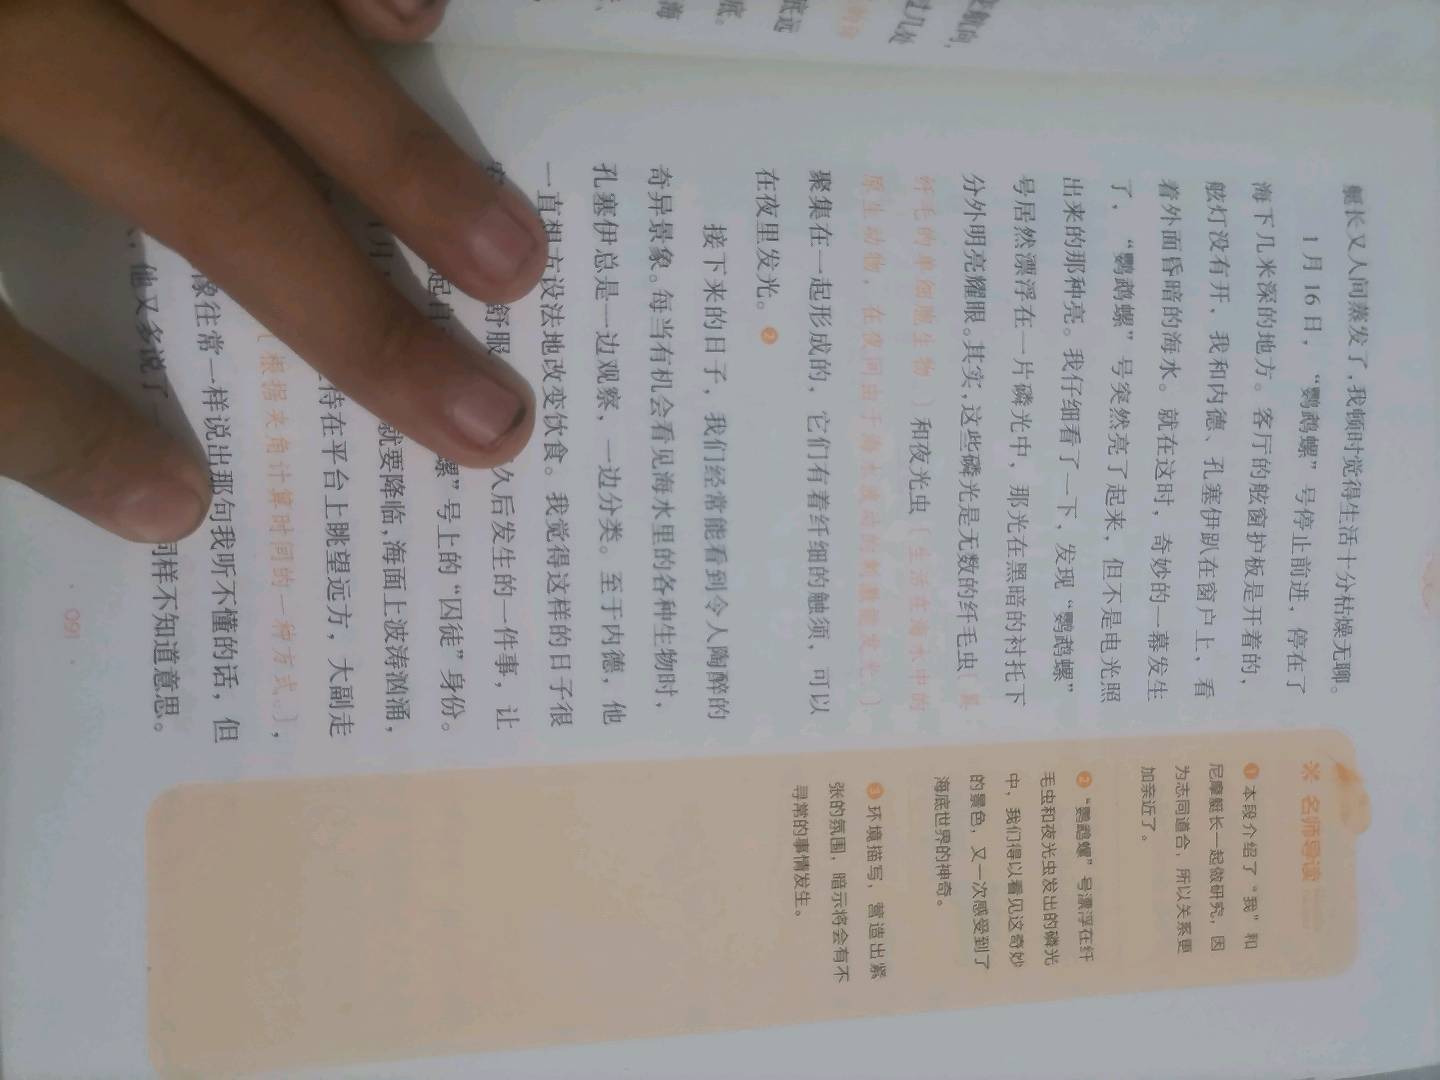 艇长又人间蒸发了，我顿时觉得生活十分枯燥无聊。
1月16日，“鹦鹉螺”号停止前进，停在了
海下几米深的地方。客厅的舷窗护板是开着的，
舷灯没有开，我和内德、孔塞伊趴在窗户上，看
着外面昏暗的海水。就在这时，奇妙的一幕发生
了，“鹦鹉螺”号突然亮了起来，但不是电光照
出来的那种亮。我仔细看了一下，发现“鹦鹉螺”
号居然漂浮在一片磷光中，那光在黑暗的衬托下
分外明亮耀眼。其实，这些磷光是无数的纤毛虫〔具
纤毛的单细胞生物。〕和夜光虫〔生活在海水中的
原生动物，在夜间由于海水波动的刺激能发光。〕
聚集在一起形成的，它们有着纤细的触须，可以
在夜里发光。❷
接下来的日子，我们经常能看到令人陶醉的
奇异景象。每当有机会看见海水里的各种生物时，
孔塞伊总是一边观察，一边分类。至于内德，他
一直想方设法地改变饮食。我觉得这样的日子很
舒服
久后发生的一件事，让
螺”号上的“囚徒”身份。
就要降临，海面上波涛汹涌，
待在平台上眺望远方，大副走
〔根据夹角计算时间的一种方式。〕，
像往常一样说出那句我听不懂的话，但
，他又多说了一
同样不知道意思。
091
※ 名师导读
❶本段介绍了“我”和
尼摩艇长一起做研究，因
为志同道合，所以关系更
加亲近了。
❷“鹦鹉螺”号漂浮在纤
毛虫和夜光虫发出的磷光
中，我们得以看见这奇妙
的景色，又一次感受到了
海底世界的神奇。
❸环境描写，营造出紧
张的氛围，暗示将会有不
寻常的事情发生。